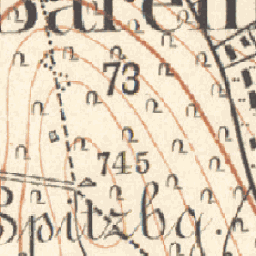 Baren
73
745
Spitzbg.